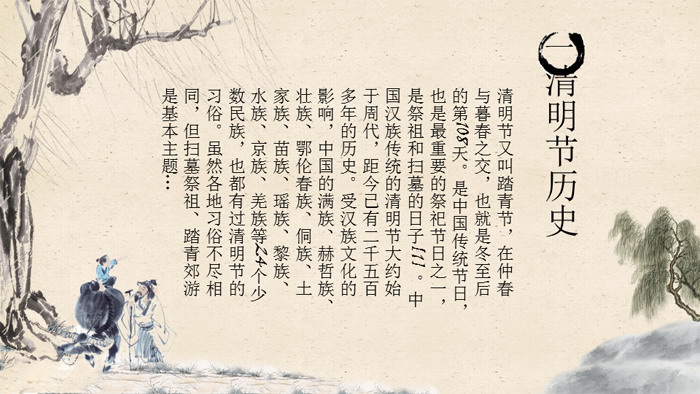 一
清明节历史
清明节又叫踏青节，在仲春
与暮春之交，也就是冬至后
的第108天。是中国传统节日，
也是最重要的祭祀节日之一，
是祭祖和扫墓的日子[1]。中
国汉族传统的清明节大约始
于周代，距今已有二千五百
多年的历史。受汉族文化的
影响，中国的满族、赫哲族、
壮族、鄂伦春族、侗族、土
家族、苗族、瑶族、黎族、
水族、京族、羌族等24个少
数民族，也都有过清明节的
习俗。虽然各地习俗不尽相
同，但扫墓祭祖、踏青郊游
是基本主题…